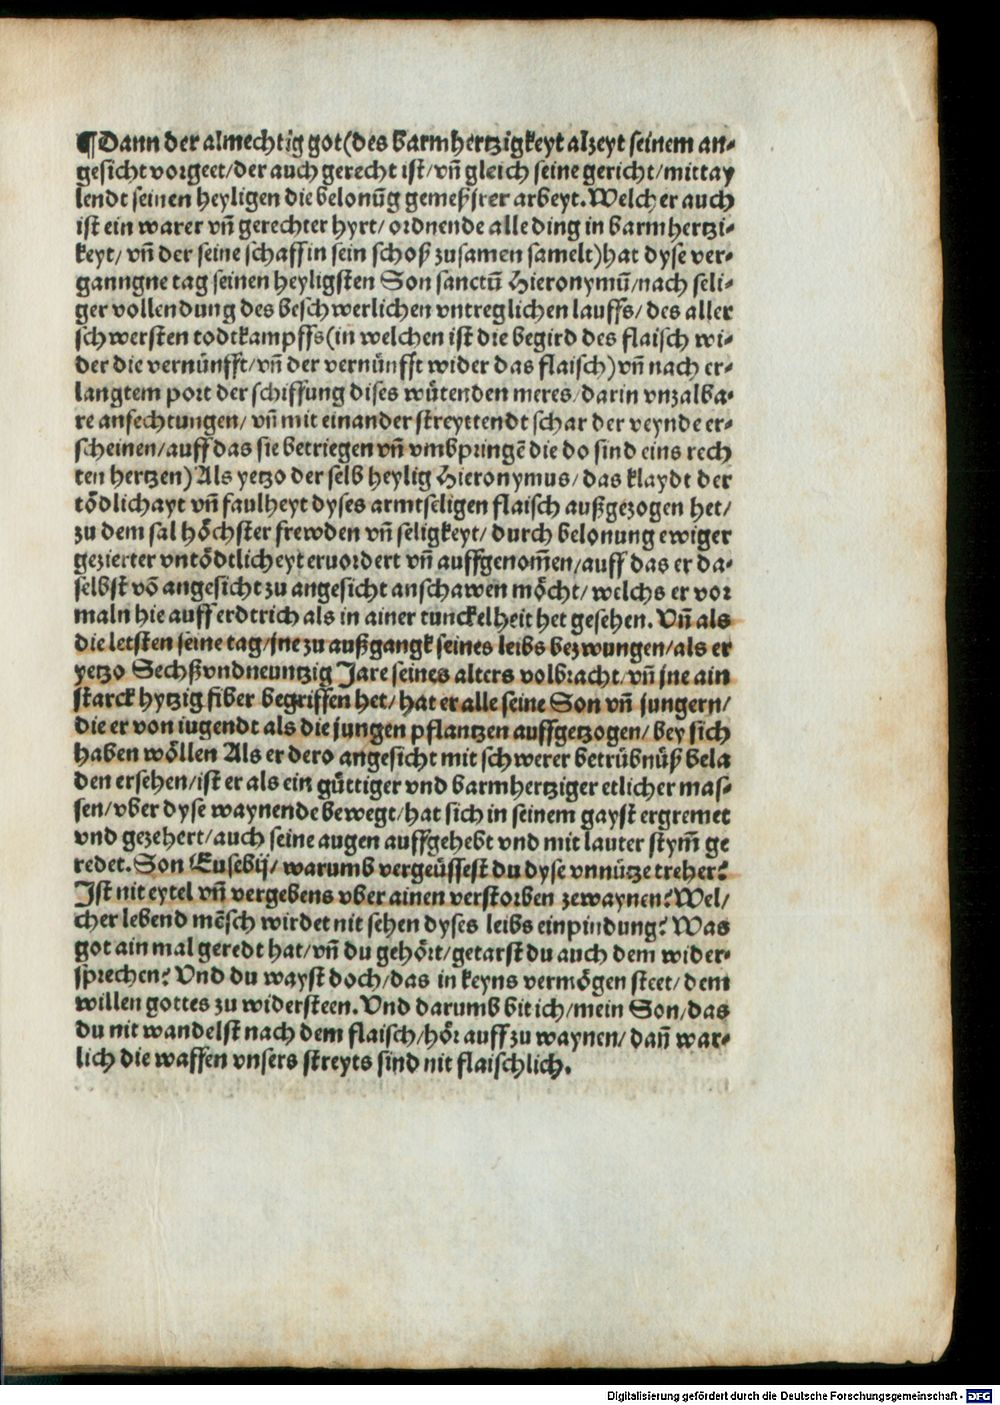 ¶Dann der almechtig got(des barmhertzigkeyt alzeyt seinem an-
gesicht vorgeet/der auch gerecht ist/vn̄ gleich seine gericht/mittay
lendt seinen heyligen die belonūg gemeß jrer arbeyt. Welcher auch
ist ein warer vn̄ gerechter hyrt/ ordnende alle ding in barmhertzi-
keyt/ vn̄ der seine schaff in sein schoß zusamen samelt)hat dyse ver-
ganngne tag seinen heyligsten Son sanctū Hieronymū/nach seli-
ger vollendung des beschwerlichen vntreglichen lauffs/ des aller
schwersten todtkampffs(in welchen ist die begird des flaisch wi-
der die vernünfft/vn̄ der vernünfft wider das flaisch)vn̄ nach er-
langtem port der schiffung dises wütenden meres/darin vnzalba-
re anfechtungen/ vn̄ mit einander streyttendt schar der veynde er-
scheinen/auff das sie betriegen vn̄ vmbpringē die do sind eins rech
ten hertzen)Als yetzo der selb heylig Hieronymus/das klaydt der
tödlichayt vn̄ faulheyt dyses armtseligen flaisch außgezogen het/
zu dem sal höchster frewden vn̄ seligkeyt/ durch belonung ewiger
gezierter vntödtlicheyt eruordert vn̄ auffgenom̄en/auff das er da-
selbst vō angesicht zu angesicht anschawen möcht/ welchs er vor
maln hie auff erdtrich als in ainer tunckelheit het gesehen. Vn̄ als
die letsten seine tag/jne zu außgangk seines leibs bezwungen/als er
yetzo Sechßvndneuntzig Jare seines alters volbracht/vn̄ jne ain
starck hytzig fiber begriffen het/ hat er alle seine Son vn̄ jungern/
die er von iugendt als die jungen pflantzen auffgetzogen/ bey sich
haben wöllen Als er dero angesicht mit schwerer betrübnüß bela
den ersehen/ist er als ein güttiger vnd barmhertziger etlicher mas-
sen/vber dyse waynende bewegt/hat sich in seinem gayst ergremet
vnd gezehert/auch seine augen auffgehebt vnd mit lauter stym̄ ge
redet. Son Eusebij/ warumb vergeüssest du dyse vnnütze treher?
Ist nit eytel vn̄ vergebens vber ainen verstorben zewaynen? Wel/
cher lebend mēsch wirdet nit sehen dyses leibs einpindung? Was
got ain mal geredt hat/vn̄ du gehört/getarst du auch dem wider-
sprechen? Vnd du wayst doch/das in keyns vermögen steet/dem
willen gottes zu widersteen. Vnd darumb bit ich/mein Son/das
du nit wandelst nach dem flaisch/hör auff zu waynen/ dan̄ war-
lich die waffen vnsers streyts sind nit flaischlich.
Digitalisierung gefördert durch die Deutsche Forschungsgemeinschaft - DFG